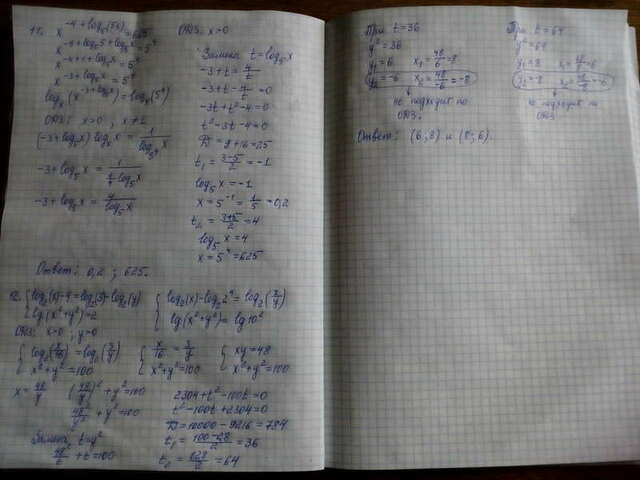 11. x^(-4+log₅(5x)) = 625
x^(-4+log₅5+log₅x) = 5⁴
x^(-4+1+log₅x) = 5⁴
x^(-3+log₅x) = 5⁴
logₓ(x^(-3+log₅x)) = logₓ(5⁴)
ОДЗ: x>0 ; x≠1
(-3+log₅x) logₓx =
-3+log₅x =
-3+log₅x = 4/log₅x
ОДЗ: x>0
Замена t=log₅x
-3+t = 4/t
-3+t-4/t=0
-3t+t²-4=0
t²-3t-4=0
D=9+16=25
t₁ = (3-5)/2 = -1
log₅x = -1
x = 5⁻¹ = 1/5 = 0,2
t₂ = (3+5)/2 = 4
log₅x = 4
x = 5⁴ = 625
Ответ: 0,2 ; 625.
12. {log₂(x)-4=log₂(3)-log₂(y)
lg(x²+y²)=2
ОДЗ: x>0 ; y>0
{log₂(x)-log₂2⁴=log₂(3/y)
lg(x²+y²)=lg10²
{log₂(x/16)=log₂(3/y)
x²+y²=100
{x/16=3/y
x²+y²=100
{xy=48
x²+y²=100
x=48/y
(48/y)²+y²=100
48²/y²+y²=100
Замена, t=y²
48²/t+t=100
2304+t²-100t=0
t²-100t+2304=0
D=10000-9216=784
t₁=(100-28)/2=36
t₂=128/2=64
При t=36
y²=36
y₁=6 x₁=48/6=8
y₂=-6 x₂=48/-6=-8
не подходит по
ОДЗ.
При t=64
y²=64
y₁=8 x₁=48/8=6
y₂=-8 x₂=48/-8=-6
не подходит по
ОДЗ
Ответ: (6;8) и (8;6).